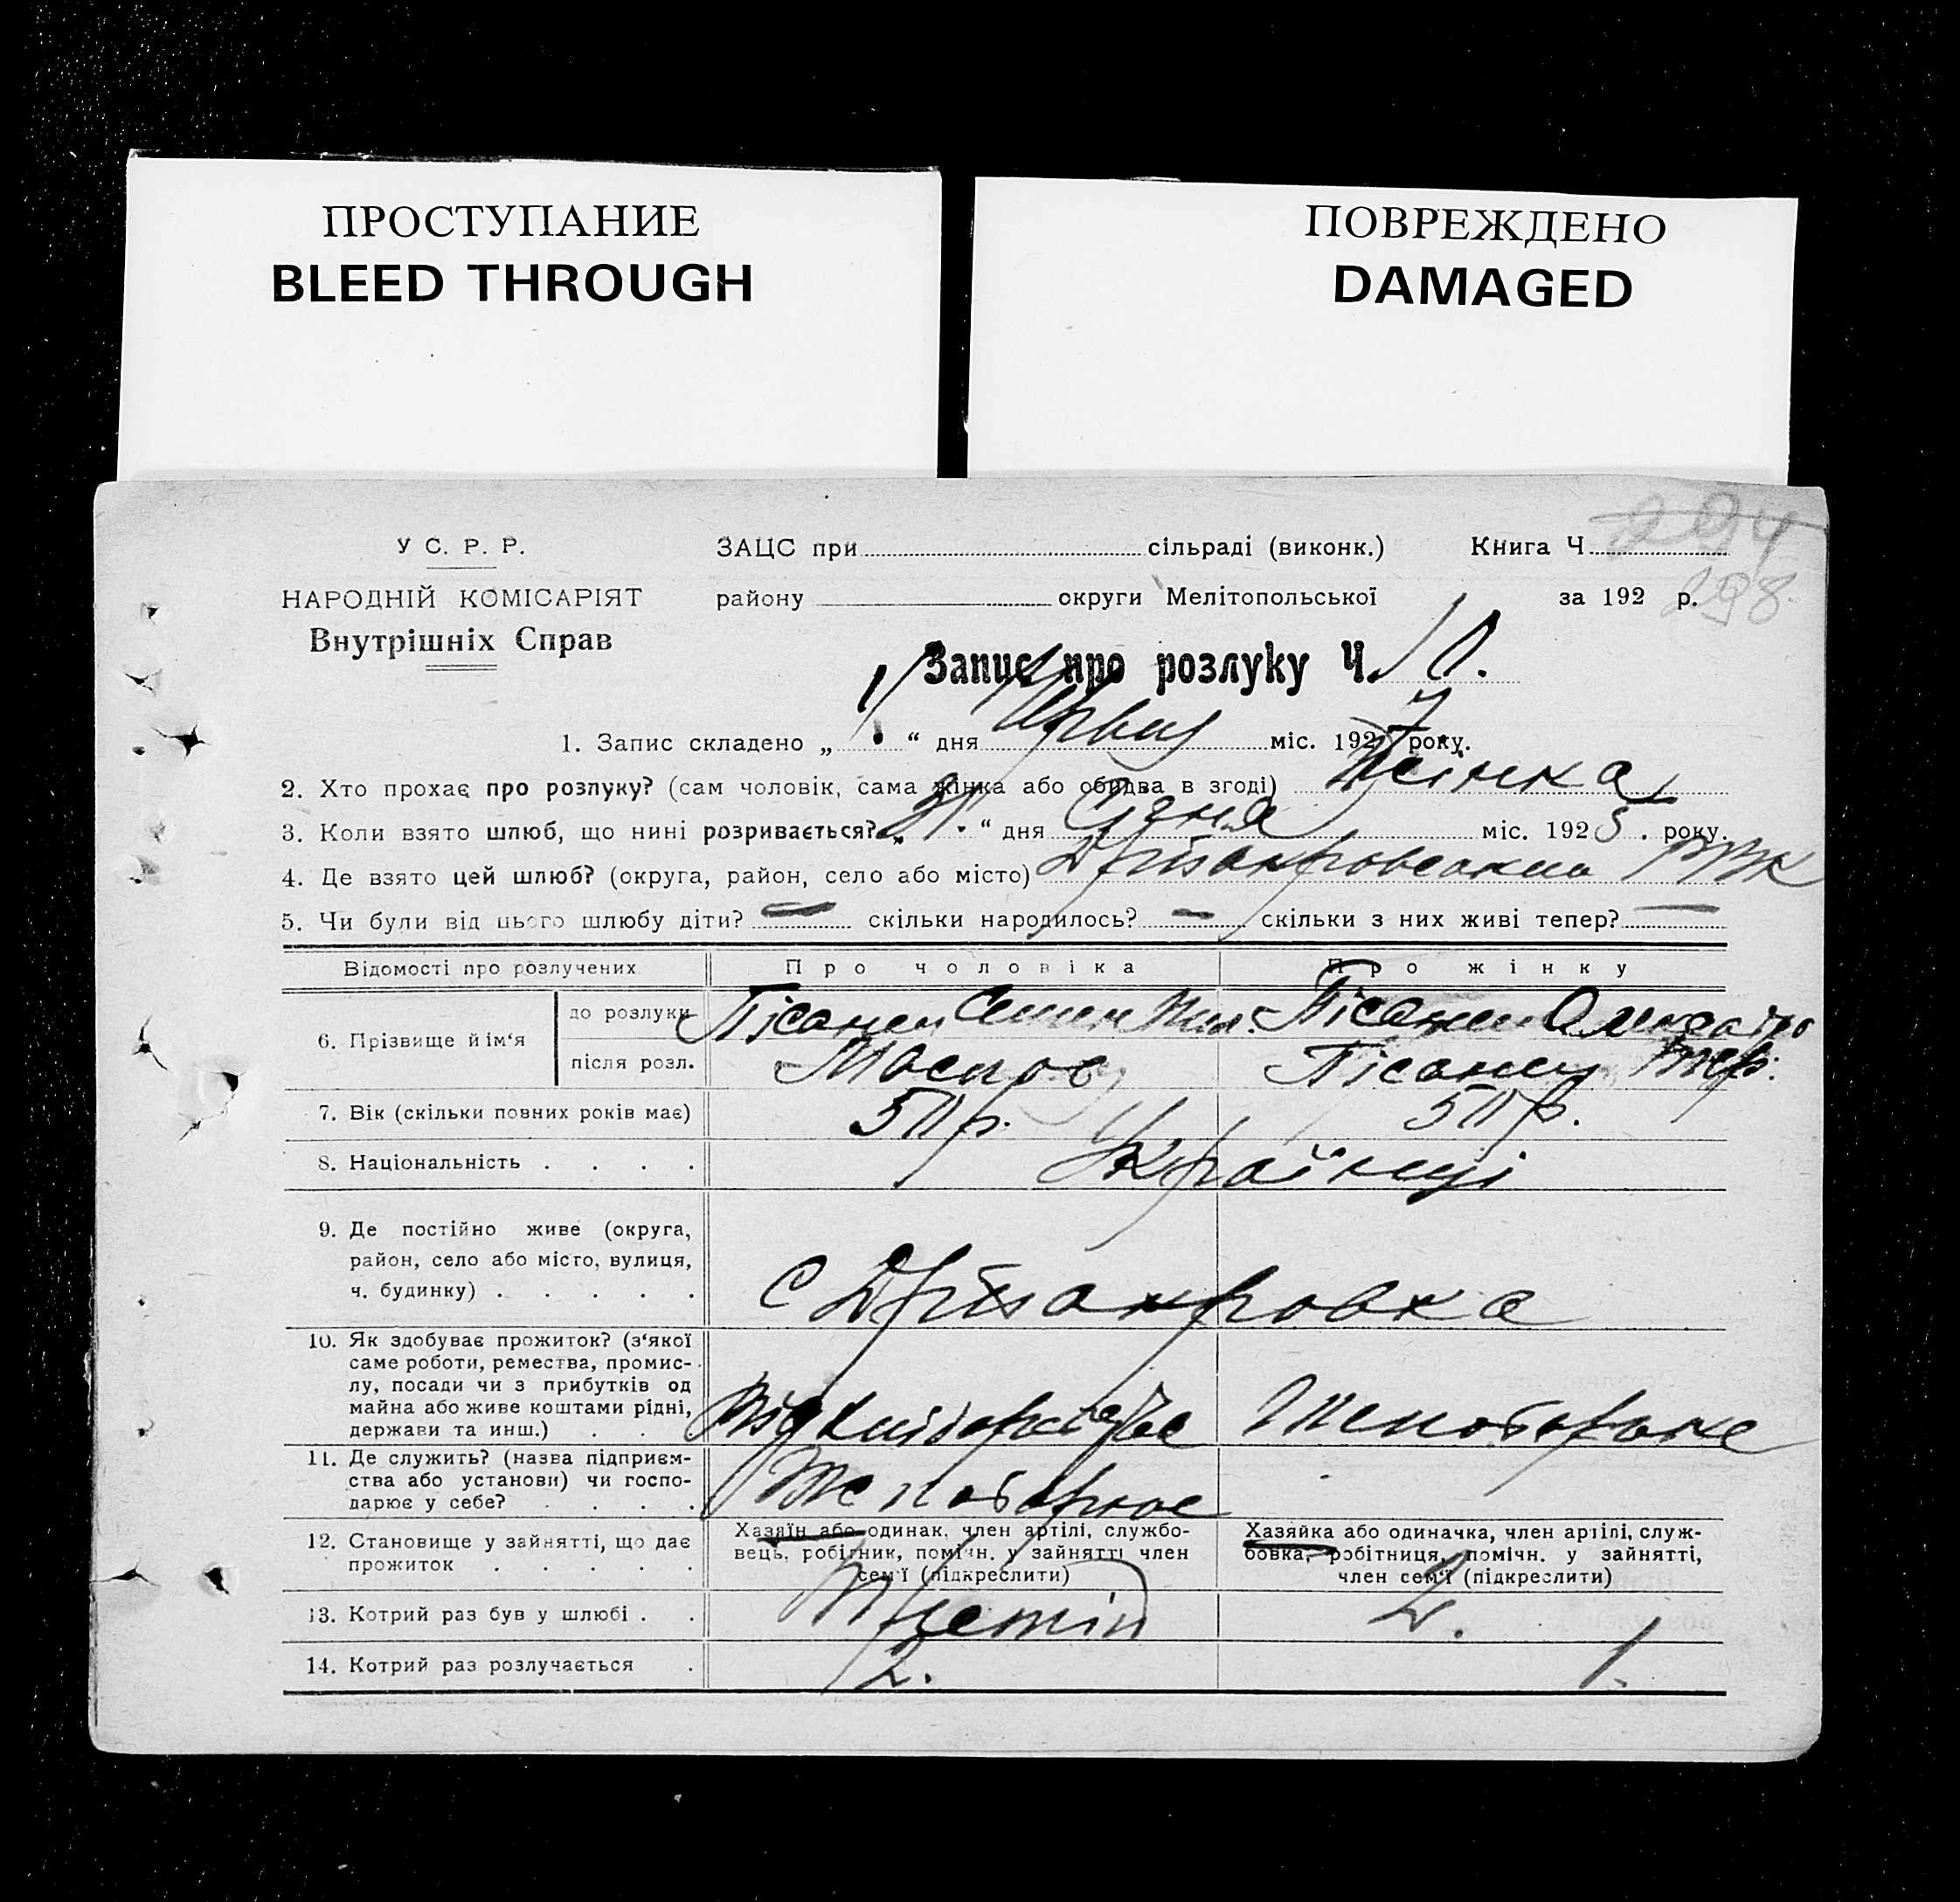 ПРОСТУПАНИЕ
BLEED THROUGH
ПОВРЕЖДЕНО
DAMAGED
294
298
У С. Р. Р.
НАРОДНІЙ КОМІСАРІЯТ
Внутрішніх Справ
ЗАЦС при сільраді (виконк.) Книга Ч
району округи Мелітопольської за 192 р.
Запис про розлуку Ч. 10.
1. Запис складено „ 1 “ дня міс. 1927 року.
2. Хто прохає про розлуку? (сам чоловік, сама жінка або обидва в згоді) Жінка
3. Коли взято шлюб, що нині розривається? „ 31. “ дня Січня міс. 1925. року.
4. Де взято цей шлюб? (округа, район, село або місто) РВК
5. Чи були від цього шлюбу діти? — скільки народилось? — скільки з них живі тепер? —
Відомості про розлучених Про чоловіка Про жінку
6. Прізвище й ім‘я
до розлуки Пісанец Семен Пісанец
після розл. Пісанец
7. Вік (скільки повних років має) 50 р. 50 р.
8. Національність . . . . Українці
9. Де постійно живе (округа,
район, село або місто, вулиця,
ч. будинку) . . . . . с
10. Як здобуває прожиток? (з‘якої
саме роботи, ремества, промис-
лу, посади чи з прибутків од
майна або живе коштами рідні,
держави та инш.) . . . Хліборобство
11. Де служить? (назва підприєм-
ства або установи) чи госпо-
дарює у себе? . . . .
12. Становище у зайнятті, що дає
прожиток . . . . .
Хазяїн або одинак, член артілі, службо-
вець, робітник, помічн. у зайнятті член
сем‘ї (підкреслити)
Хазяйка або одиначка, член артілі, служ-
бовка, робітниця, помічн. у зайнятті,
член сем‘ї (підкреслити)
13. Котрий раз був у шлюбі . . Третій 2.
14. Котрий раз розлучається . 2. 1.